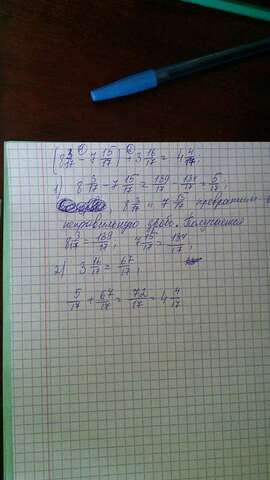 (8 3/17 - 7 15/17) + 3 16/17 = 4 4/17.
1) 8 3/17 - 7 15/17 = 139/17 - 134/17 = 5/17;
8 3/17 и 7 15/17 превратим в
неправильную дробь. Получается
8 3/17 = 139/17; 7 15/17 = 134/17;
2) 3 16/17 = 67/17;
5/17 + 67/17 = 72/17 = 4 4/17